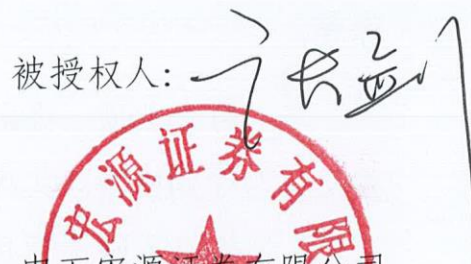 被授权人:
宏源证券有限
申万宏源证券有限公司